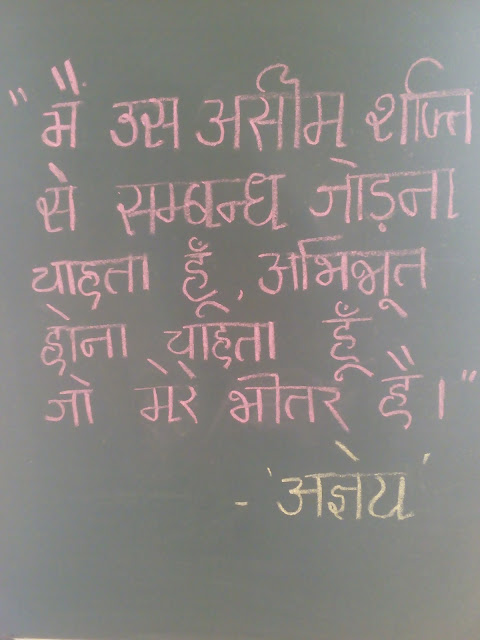 "मैं उस असीम शक्ति
से सम्बन्ध जोड़ना
चाहता हूँ, अभिभूत
होना चाहता हूँ
जो मेरे भीतर है।"
- 'अज्ञेय'